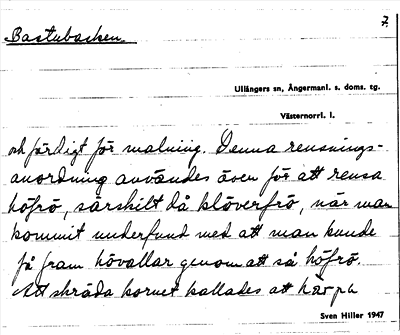 2.
Bastubacken.
Ullångers sn, Ångermanl. s. doms. tg.
Västernorrl. l.
och färdigt för malning. Denna rensnings-
anordning användes även för att rensa
höfrö, särskilt då klöverfrö, när man
kommit underfund med att man kunde
få fram hövallar genom att så höfrö
Att skräda kornet kallades att
Sven Hiller 1947